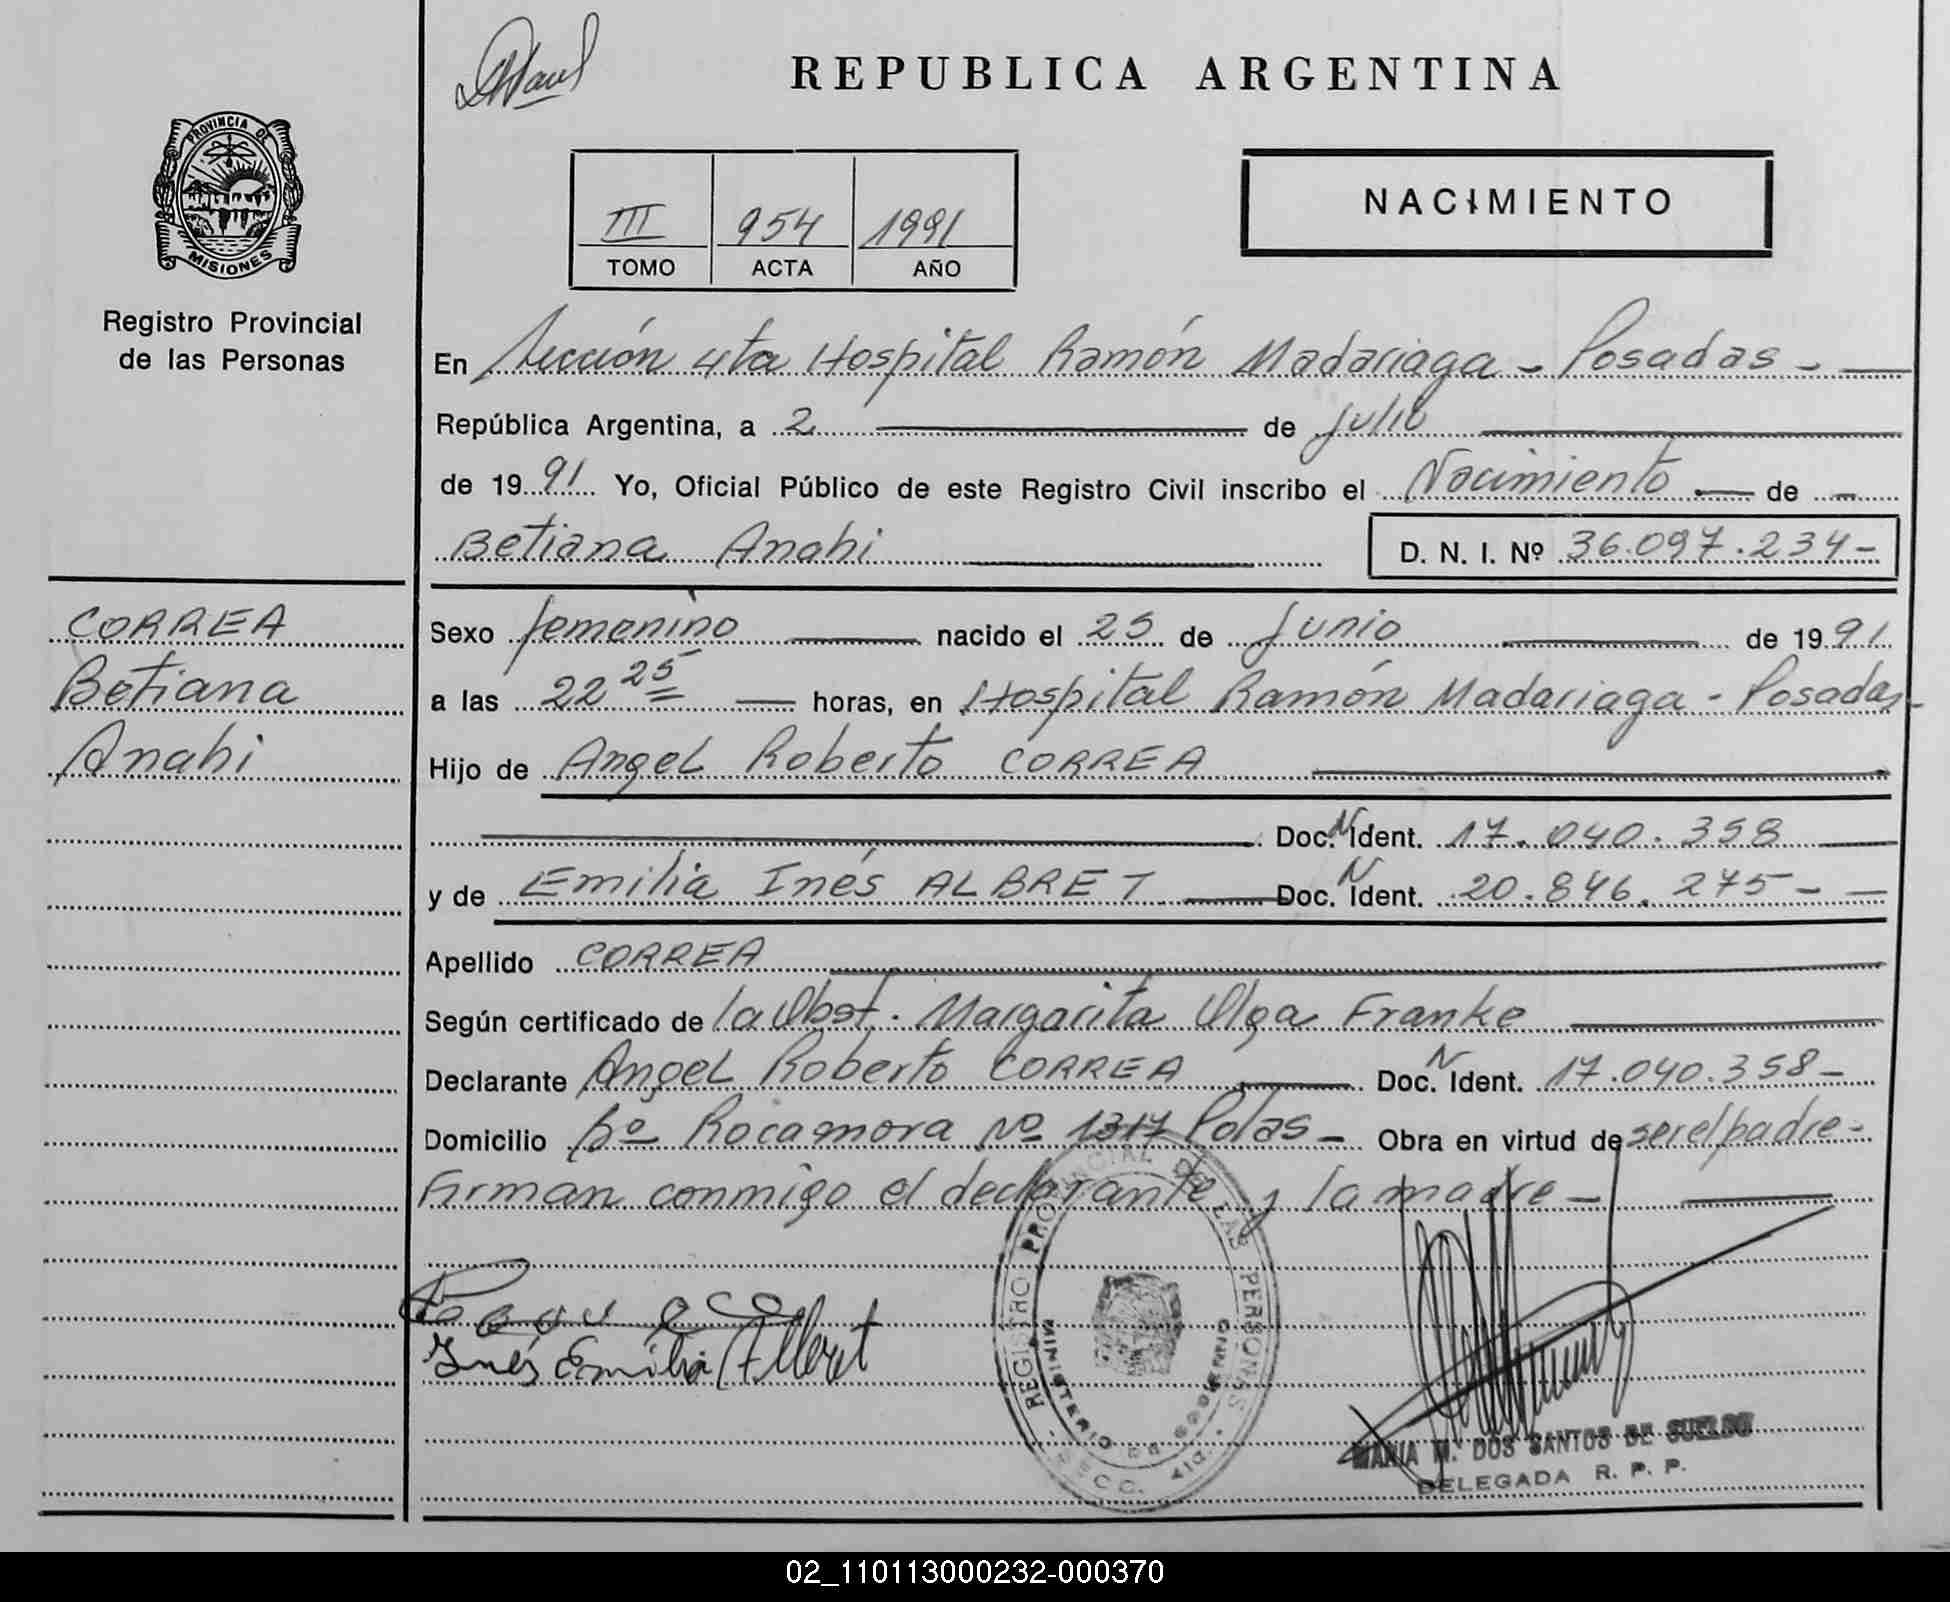 REPUBLICA ARGENTINA
PROVINCIA DE
MISIONES
Registro Provincial
de las Personas
III 954 1991
TOMO ACTA AÑO
NACIMIENTO
En Sección 4ta Hospital Ramón Madariaga - Posadas -
República Argentina, a 2 de julio
de 1991 Yo, Oficial Público de este Registro Civil inscribo el Nacimiento de
Betiana Anahi D. N. I. Nº 36.097.234-
CORREA
Betiana
Anahi
Sexo femenino nacido el 25 de Junio de 1991
a las 22 25 horas, en Hospital Ramón Madariaga - Posadas -
Hijo de Angel Roberto CORREA
Doc. N Ident. 17.040.358
y de Emilia Inés ALBRET Doc. N Ident. 20.846.275 -
Apellido CORREA
Según certificado de la Obst. Margarita Olga Franke
Declarante Angel Roberto CORREA Doc. N Ident. 17.040.358-
Domicilio Bº Rocamora Nº 1317 Pdas - Obra en virtud de ser el padre -
Firman conmigo el declarante y la madre -
Inés Emilia Albret
REGISTRO PROVINCIAL DE LAS PERSONAS
MINISTERIO DE GOBIERNO
SECC. 4ta.
MARIA M. DOS SANTOS DE SUELDO
DELEGADA R. P. P.
02_110113000232-000370